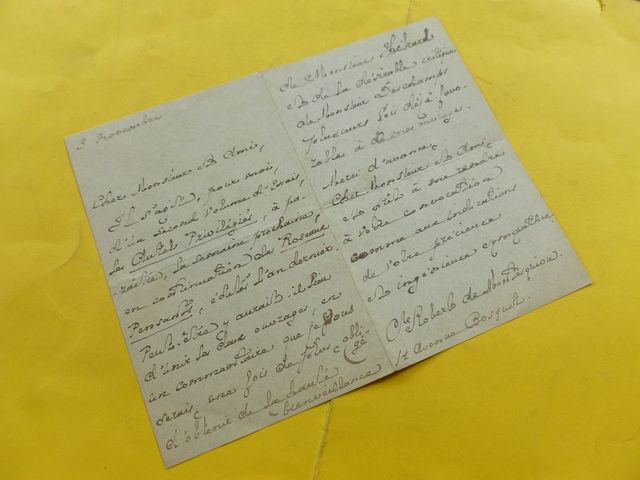 3 novembre
Cher Monsieur et Ami,
Il s'agit, pour moi,
d'un second volume d'Essais
le Autels Privilégiés, à pa-
raître, la semaine prochaine,
en continuation de Roseaux
Pensants, édités l'an dernier.
Peut-être y aurait-il lieu
d'unir les deux ouvrages, en
un commentaire que je vous
serais, une fois de plus obligé
d'obtenir de la haute
bienveillance
de Monsieur Hébrard
et de la désirable critique
de Monsieur Deschamps
plusieurs fois déjà favo-
rables à mes ouvrages.
Merci d'avance
Cher Monsieur et Ami
et prêt à me rendre
à votre convocation
comme aux indications
de votre précieuse
et ingénieuse sympathie.
Cte Robert de Montesquiou.
Avenue Bosquet